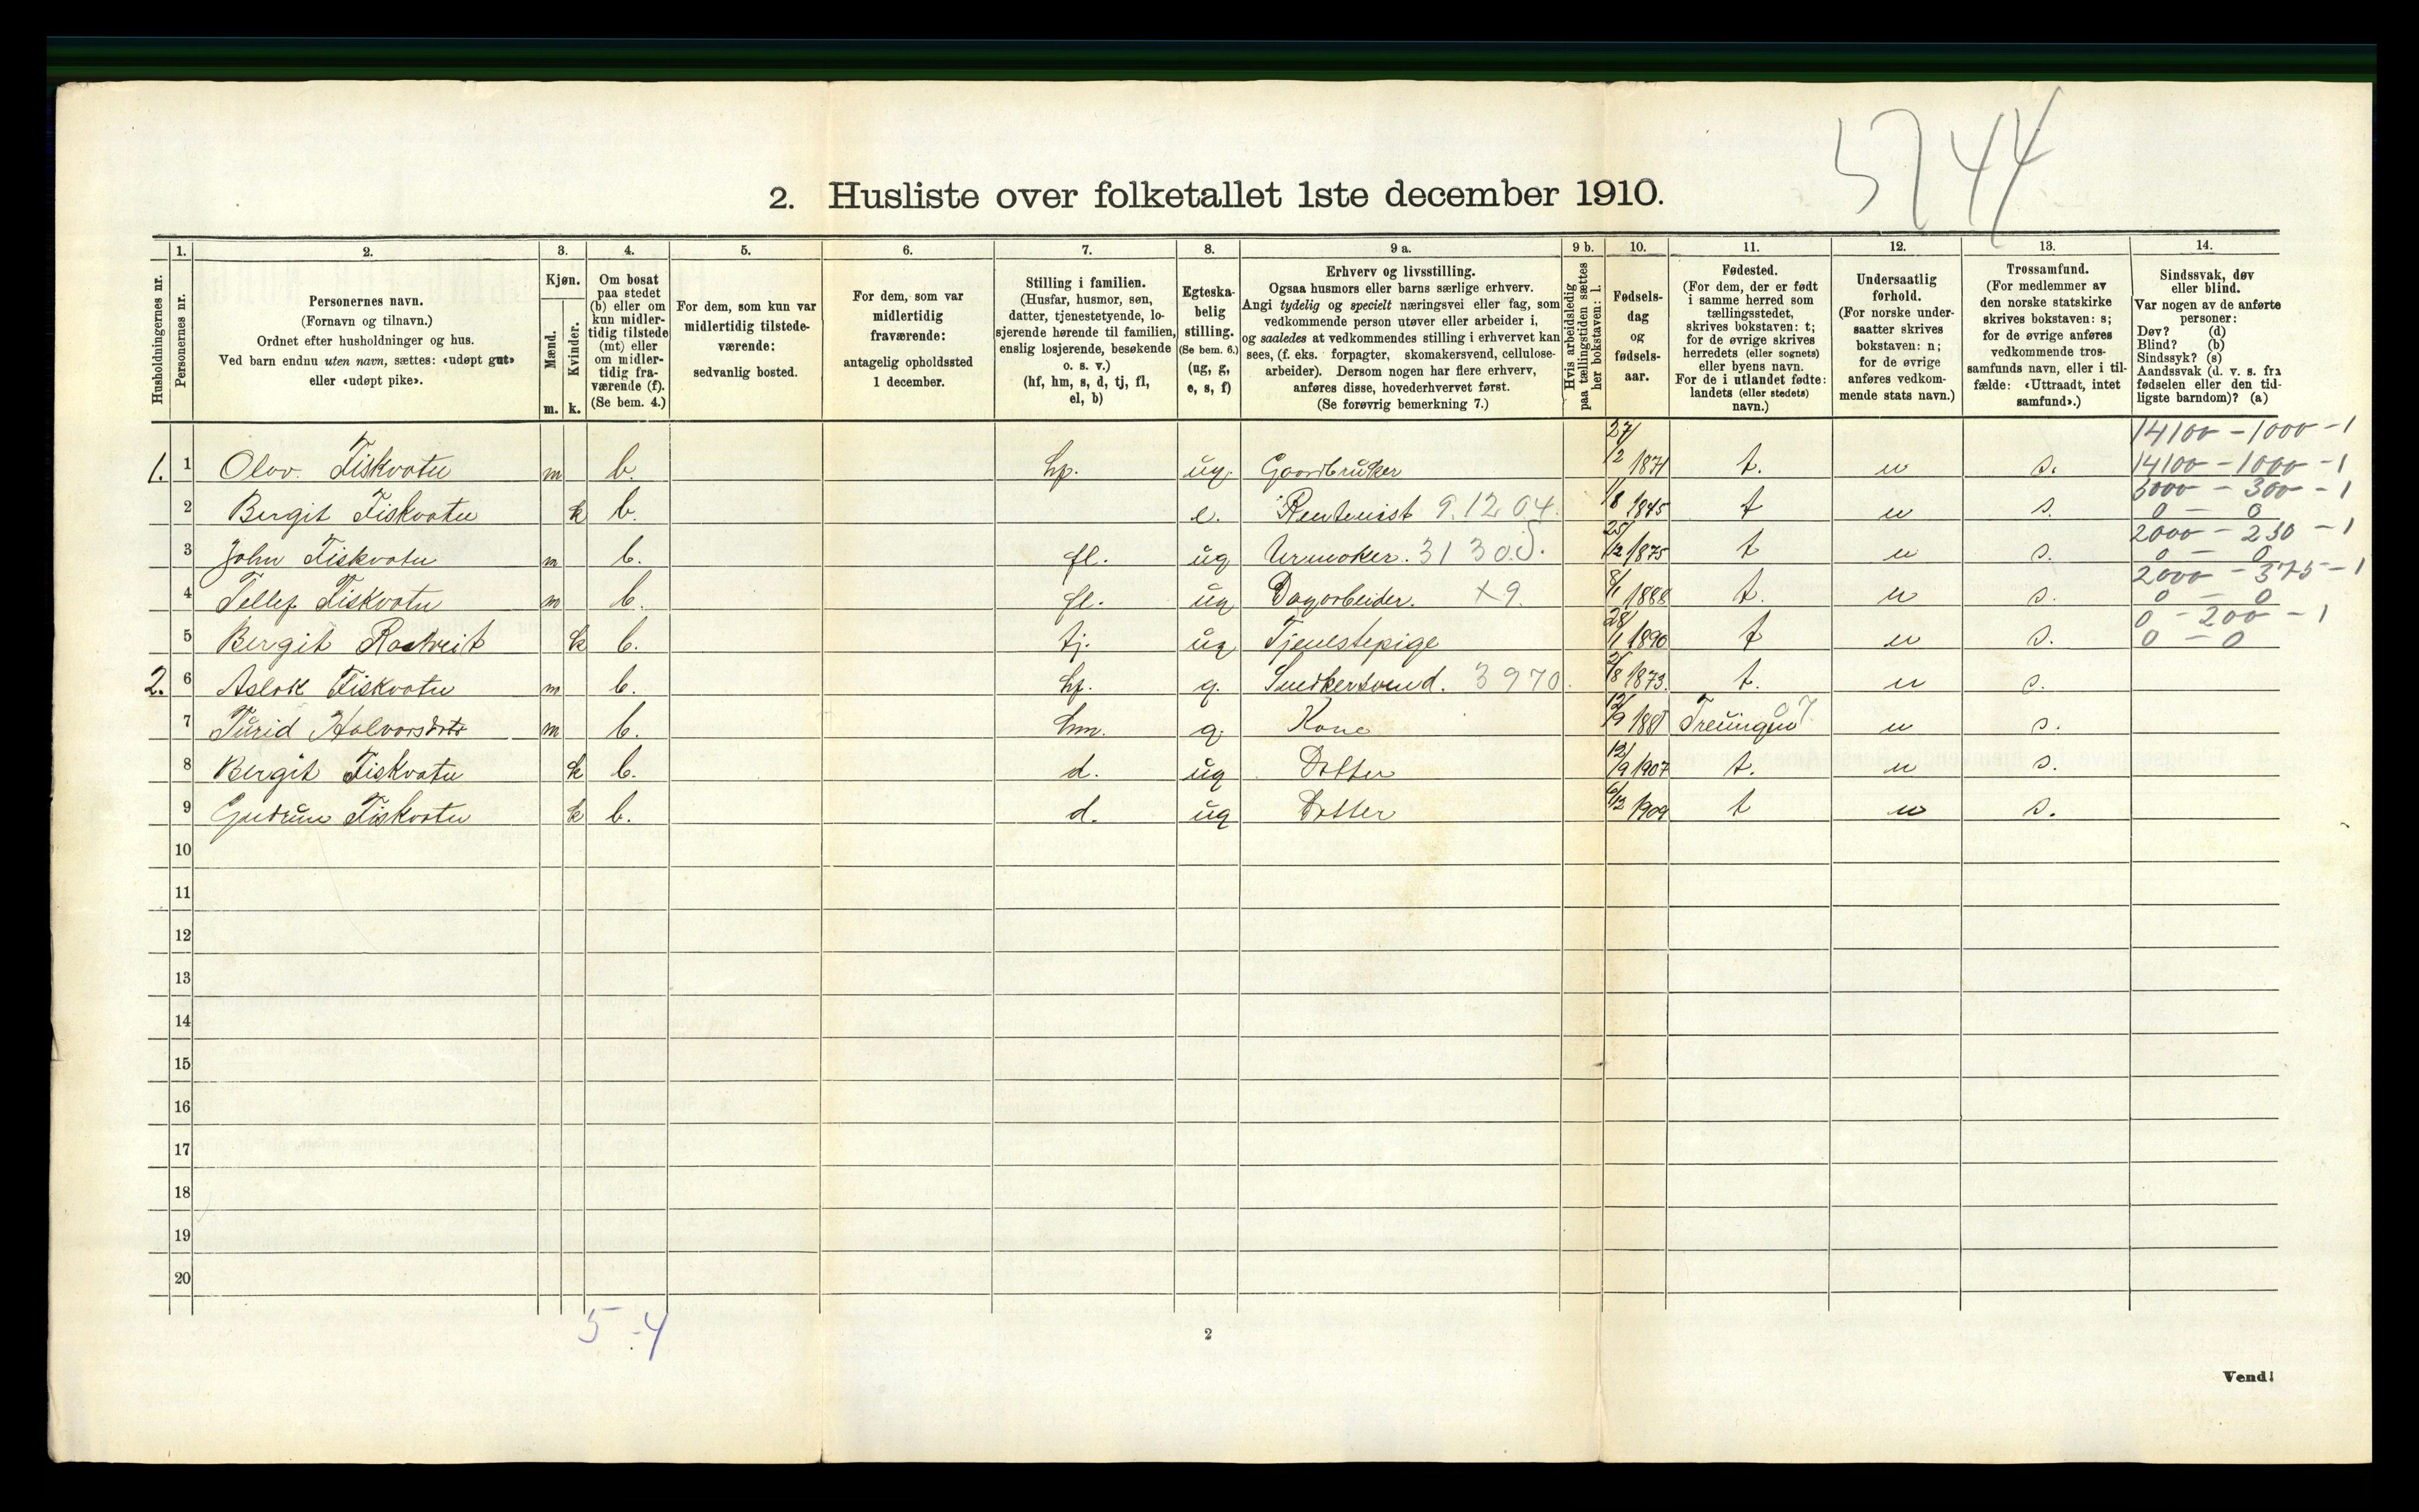 5744
2. Husliste over folketallet 1ste december 1910.
Husholdningernes nr.
1.
Personernes nr.
2.
Personernes navn.
(Fornavn og tilnavn.)
Ordnet efter husholdninger og hus.
Ved barn endnu uten navn, sættes: «udøpt gut»
eller «udøpt pike».
3.
Kjøn.
Mænd.
Kvinder.
m. k.
4.
Om bosat
paa stedet
(b) eller om
kun midler-
tidig tilstede
(mt) eller
om midler-
tidig fra-
værende (f).
(Se bem. 4.)
5.
For dem, som kun var
midlertidig tilstede-
værende:
sedvanlig bosted.
6.
For dem, som var
midlertidig
fraværende:
antagelig opholdssted
1 december.
7.
Stilling i familien.
(Husfar, husmor, søn,
datter, tjenestetyende, lo-
sjerende hørende til familien,
enslig losjerende, besøkende
o. s. v.)
(hf, hm, s, d, tj, fl,
el, b)
8.
Egteska-
belig
stilling.
(Se bem. 6.)
(ug, g,
e, s, f)
9 a.
Erhverv og livsstilling.
Ogsaa husmors eller barns særlige erhverv.
Angi tydelig og specielt næringsvei eller fag, som
vedkommende person utøver eller arbeider i,
og saaledes at vedkommendes stilling i erhvervet kan
sees, (f. eks. forpagter, skomakersvend, cellulose-
arbeider). Dersom nogen har flere erhverv,
anføres disse, hovederhvervet først.
(Se forøvrig bemerkning 7.)
9 b.
Hvis arbeidsledig
paa tællingstiden sættes
her bokstaven: l.
10.
Fødsels-
dag
og
fødsels-
aar.
11.
Fødested.
(For dem, der er født
i samme herred som
tællingsstedet,
skrives bokstaven: t;
for de øvrige skrives
herredets (eller sognets)
eller byens navn.
For de i utlandet fødte:
landets (eller stedets)
navn.)
12.
Undersaatlig
forhold.
(For norske under-
saatter skrives
bokstaven: n;
for de øvrige
anføres vedkom-
mende stats navn.)
13.
Trossamfund.
(For medlemmer av
den norske statskirke
skrives bokstaven: s;
for de øvrige anføres
vedkommende tros-
samfunds navn, eller i til-
fælde: «Uttraadt, intet
samfund».)
14.
Sindssvak, døv
eller blind.
Var nogen av de anførte
personer:
Døv? (d)
Blind? (b)
Sindssyk? (s)
Aandssvak (d. v. s. fra
fødselen eller den tid-
ligste barndom)? (a)
14100 - 1000 - 1
1. 1 Olav Fiskvatn m b. hf. ug. Gaardbruker 27/2 1871 t. n s. 14100 - 1000 - 1
6000 - 300 - 1
2 Bergit Fiskvatn k b. e. Rentenist 9.12.04. 1/8 1845 t n s. 0 - 0
2000 - 230 - 1
3 John Fiskvatn m b. fl. ug Urmaker. 31 30 25/12 1875 t n s. 0 - 0
2000 - 375 - 1
4 Tellef Fiskvatn m b. fl. ug Dagarbeider. X9. 8/1 1888 t. n s. 0 - 0
0 - 200 - 1
5 Bergit k b. tj. ug Tjenestepige 28/1 1890 t n s. 0 - 0
2. 6 Aslak Fiskvatn m b. hf. g. Snedkersvend. 3970. 2/8 1873. t. n s.
7 Turid Halvorsdtr m b. hm. g. Kone 12/9 1881 Treungen 07 n s.
8 Bergit Fiskvatn k b. d. ug Datter 12/9 1907 t. n s.
9 Gudrun Fiskvatn k b. d. ug Datter 6/12 1909 t n s.
10
11
12
13
14
15
16
17
18
19
20
5-4
2
Vend!